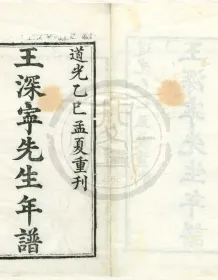 道光乙巳孟夏重刊
王深寧先生年譜